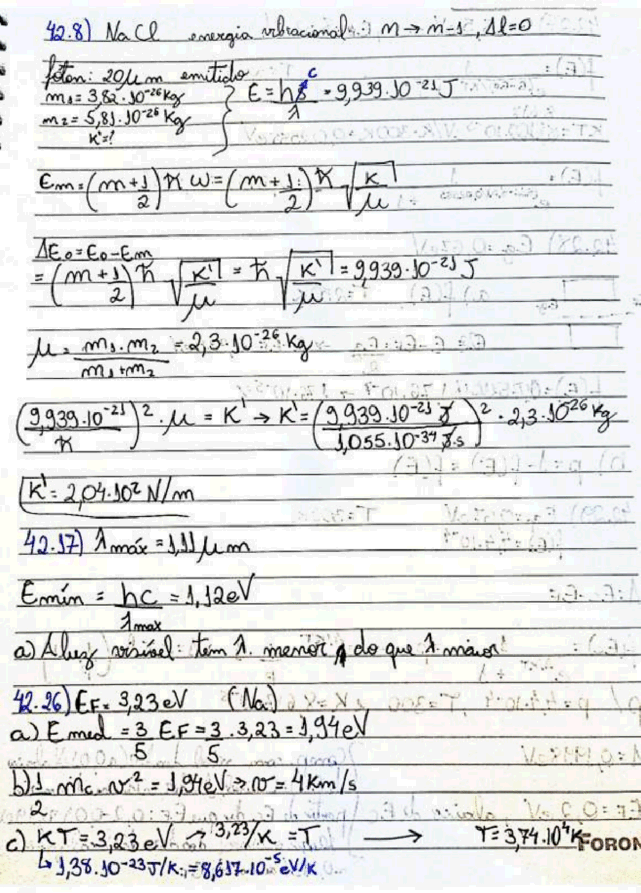 42.8) NaCl energia vibracional: n → n-1, Δl=0
fóton: 20μm emitido
m1=3,82·10^-26 Kg
m2=5,81·10^-26 Kg
K'=?
E=hc/λ = 9,939·10^-21 J
Em=(m+1/2)ħω=(m+1/2)ħ√(K'/μ)
ΔE0=E0-Em
=(m+1/2)ħ√(K'/μ) = ħ√(K'/μ) = 9,939·10^-21 J
μ = m1·m2/(m1+m2) = 2,3·10^-26 Kg
(9,939·10^-21/ħ)^2·μ = K' → K'=(9,939·10^-21 J/1,055·10^-34 J.s)^2·2,3·10^26 Kg
K'=2,04·10^2 N/m
42.17) λmáx=1,11μm
Emín = hc/λmax = 1,12eV
a) A luz visível: tem λ menor do que λ máior
42.26) EF= 3,23 eV (Na)
a) Emed = 3/5 EF = 3/5 . 3,23 = 1,94eV
b) 1/2 mc v^2 = 1,94eV → v = 4Km/s
c) KT = 3,23 eV → 3,23/K = T → T= 3,74·10^4 K
↳ 1,38·10^-23 J/K = 8,617·10^-5 eV/K
FORON